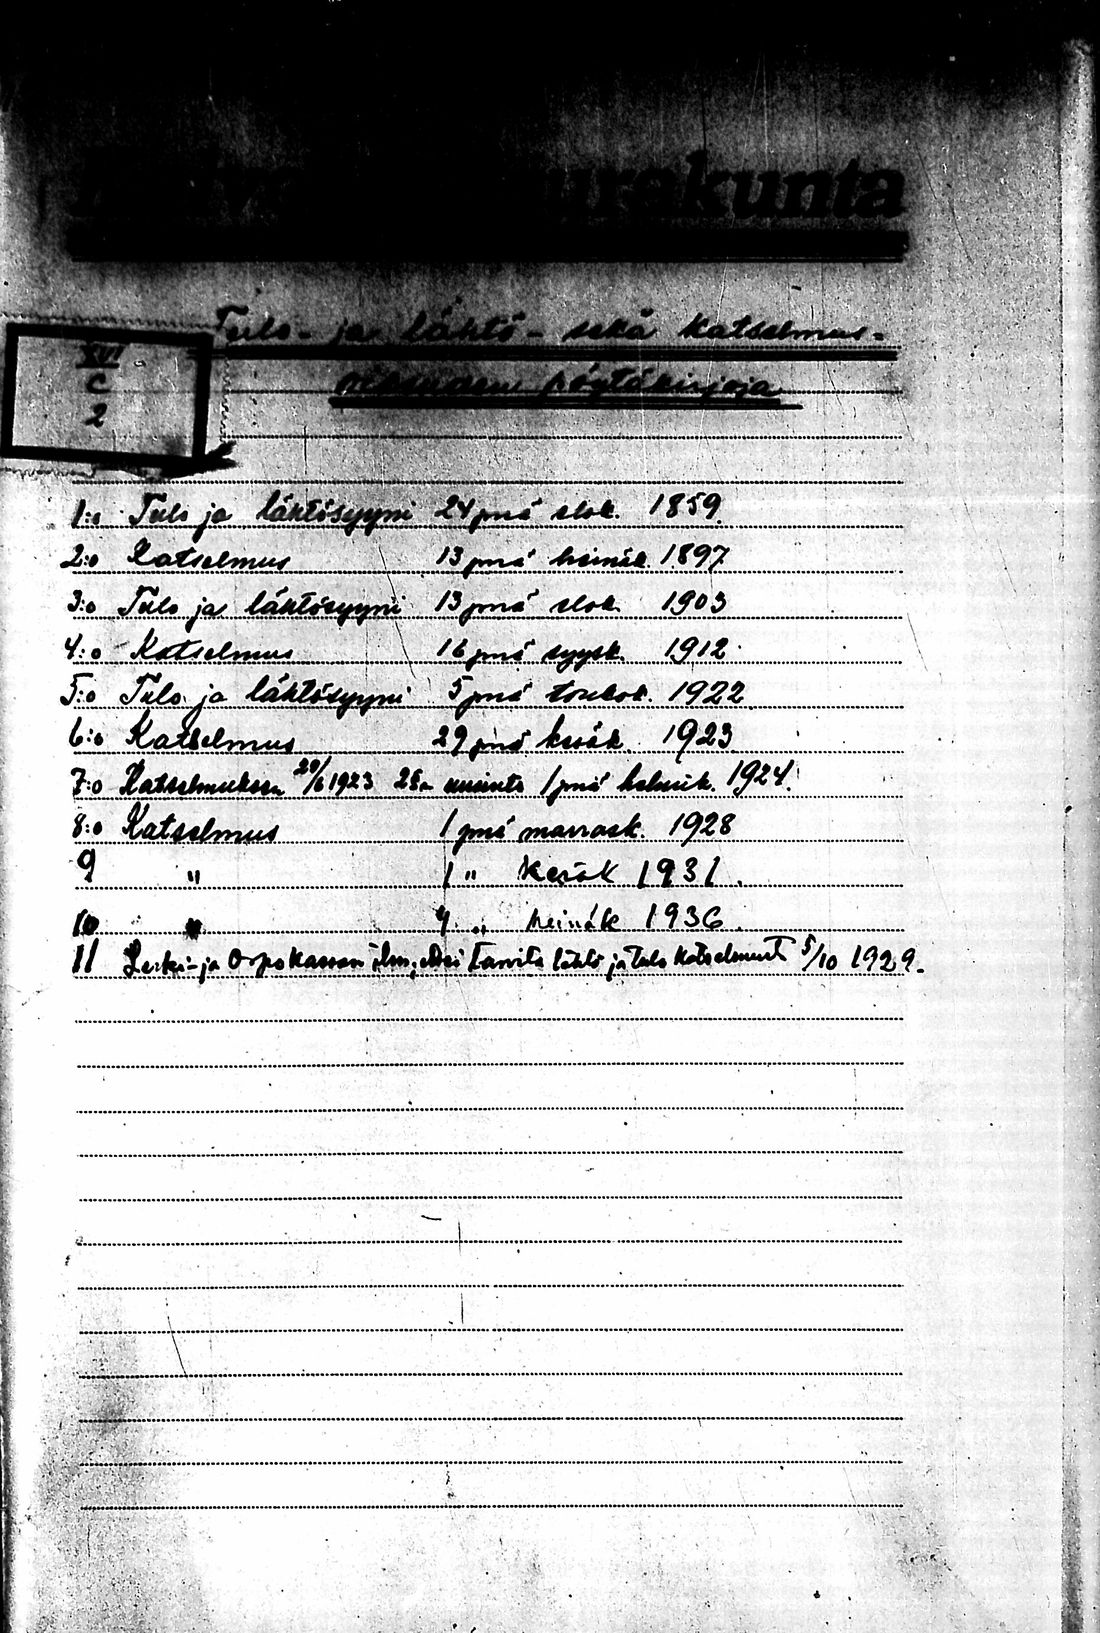 urakunta
Tulo- ja lähtö- sekä katselmus-
pöytäkirjoja
XVI
C
2
1:o Tulo ja lähtösyyni 24 pnä elok. 1859.
2:o Katselmus 13 pnä heinäk. 1897
3:o Tulo ja lähtösyyni 13 pnä elok. 1903
4:o Katselmus 16 pnä syysk. 1912
5:o Tulo ja lähtösyyni 5 pnä toukok. 1922
6:o Katselmus 29 pnä kesäk. 1923
7:o Katselmuksen 29/6 1923 1 pnä helmik. 1924.
8:o Katselmus 1 pnä marrask. 1928
9 " 1 " kesäk 1931.
10 " 4 " heinäk 1936.
11 Leski- ja Orpokassan ilm. ettei tarvita lähtö ja tulo katselmust 5/10 1929.